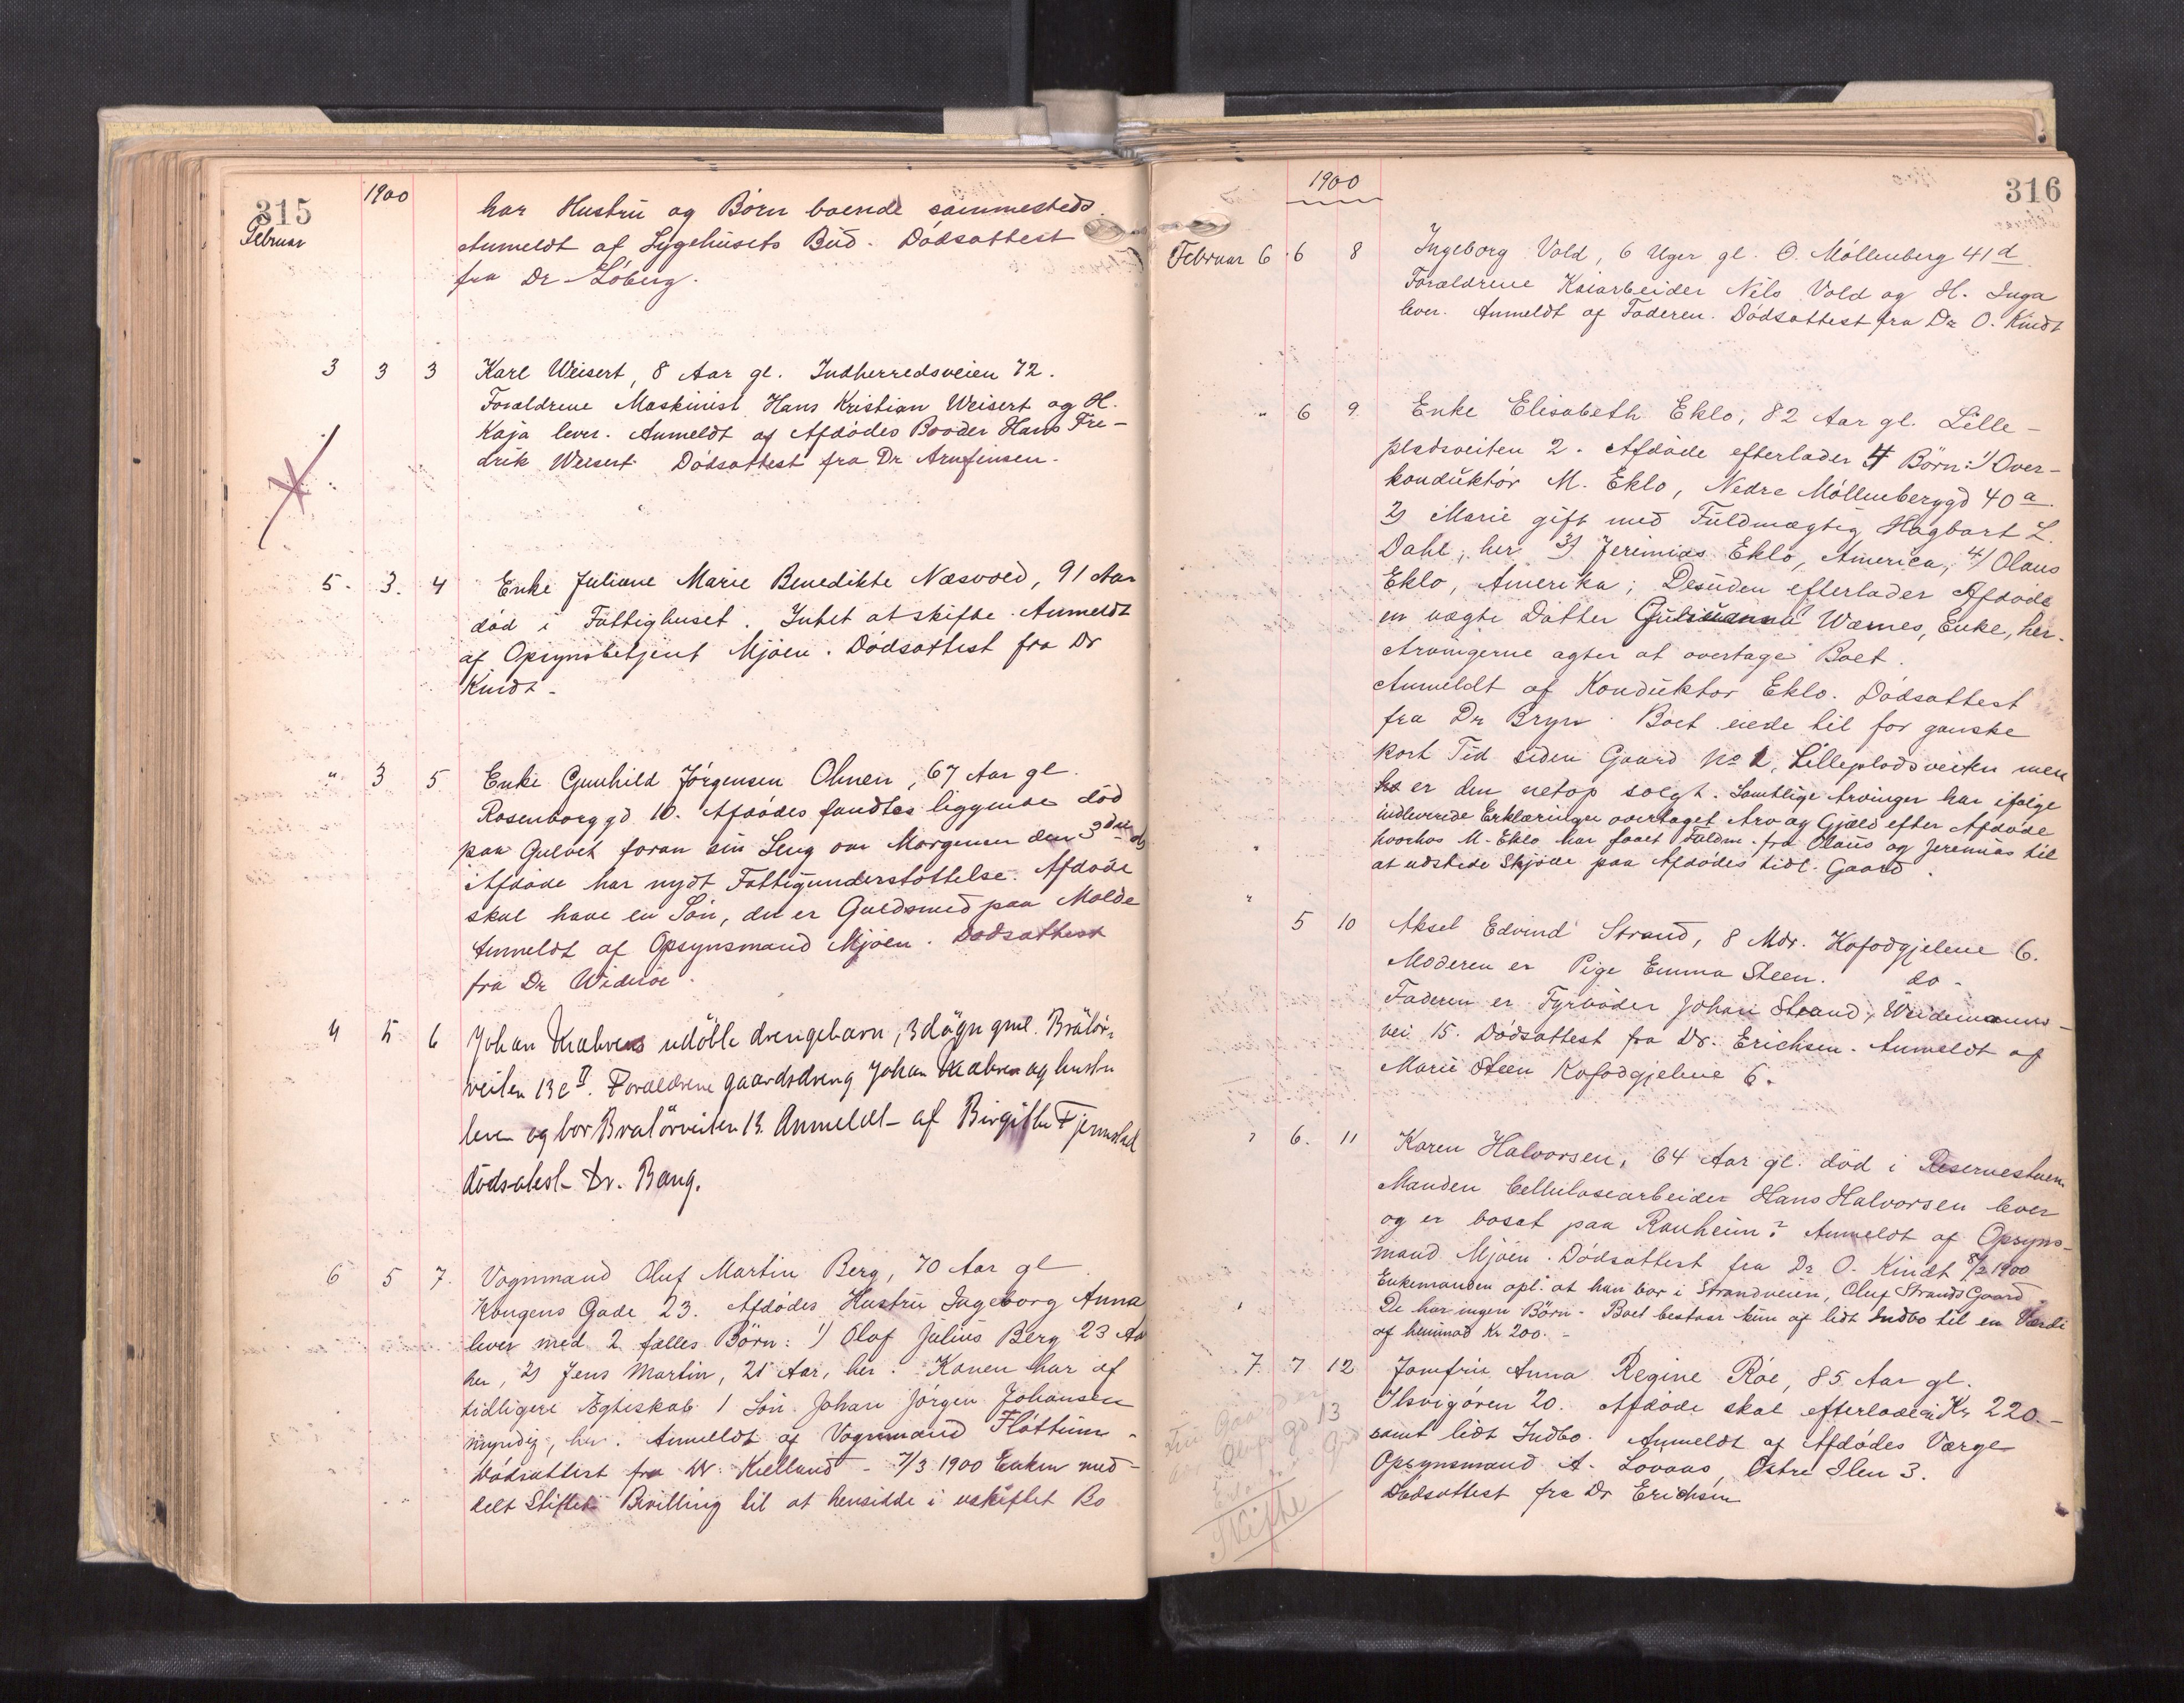 315
1900
Februar
har Hustru og Börn boende sammesteds.
Anmeldt af Sygehusets Bud. Dödsattest
fra Dr Löberg.
3 3 3 Karl Weisert, 8 Aar gl. Indherredsveien 72.
Forældrene Maskinist Hans Kristian Weisert og H.
Kaja lever. Anmeldt af Afdödes Broder Hans Fre-
drik Weisert Dödsattest fra Dr Arnfinsen.
5. 3. 4 Enke Juliane Marie Benedikte Næsvold, 91 Aar
död i Fattighuset. Intet at skifte. Anmeldt
af Opsynsbetjent Mjöen. Dödsattest fra Dr
Kindt.
" 3 5 Enke Gunhild Jörgensen Olmen, 67 Aar gl.
Rosenborggd 10. Afdödes fandtes liggende död
paa Gulvet foran sin Seng om Morgenen den 3die ds
Afdöde har nydt Fattigunderstöttelse. Afdöde
skal have en Sön, der er Guldsmed paa Molde
Anmeldt af Opsynsmand Mjöen. Dödsattest
fra Dr Wideröe.
4 5 6 Johan udöbte drengebarn, 3 dögn gml. Bratör-
veiten 13 c II. Forældrene gaardsdreng Johan og hustru
leve og bor Bratörveiten 13. Anmeldt af Birgitte Fjermstad
dödsatest Dr. Bang.
6 5 7. Vognmand Oluf Martin Berg, 70 Aar gl.
Kongens Gade 23. Afdödes Hustru Ingeborg Anna
lever med 2 fælles Börn: 1) Olaf Julius Berg 23 Aar
her, 2) Jens Martin, 21 Aar, her. Konen har af
tidligere Ægteskab 1 Sön Johan Jörgen Johansen
myndig, her. Anmeldt af Vognmand Flöttum.
Dödsattest fra Dr. Kielland - 7/3 1900 Enken med-
delt Stiftets Bevilling til at hensidde i uskiftet Bo
316
1900
Februar 6 6 8 Ingeborg Vold, 6 Uger gl. O. Möllenberg 41 d
Forældrene Kaiarbeider Nils Vold og H. Inga
lever. Anmeldt af Faderen. Dödsattest fra Dr O. Kindt
" 6 9. Enke Elisabeth Eklo, 82 Aar gl. Lille-
pladsveiten 2. Afdöde efterlader 4 Börn: 1) Over-
konduktör M. Eklo, Nedre Möllenberggd 40 a.
2) Marie gift med Fuldmægtig Hagbart L.
Dahl, her 3) Jerimias Eklo, America, 4) Olaus
Eklo, Amerika; Desuden efterlader Afdöde
en uægte Datter Wærnes, Enke, her.
Arvingerne agter at overtage Boet.
Anmeldt af Konduktör Eklo. Dödsattest
fra Dr Bryn. Boet eiede til for ganske
kort Tid siden Gaard No 2, Lillepladsveiten men
er den netop solgt. Samtlige Arvinger har ifölge
indleverede Erklæringer overtaget Arv og Gjæld efter Afdöde
hvorhos M. Eklo har faaet Fuldm. fra Olaus og Jeremias til
at udstede Skjöde paa Afdödes tidl. Gaard.
" 5 10 Aksel Edvind Strand, 8 Mdr. Kofodgjelene 6.
Moderen er Pige Emma Steen. do-
Faderen er Fyrböder Johan Strand, Weidemanns-
vei 15. Dödsattest fra Dr. Erichsen. Anmeldt af
Marie Steen Kofodgjelene 6.
" 6. 11 Karen Halvorsen, 64 Aar gl. död i Reservestuen.
Manden Cellulosearbeider Hans Halvorsen lever
og er bosat paa Ranheim? Anmeldt af Opsyns-
mand Mjöen. Dödsattest fra Dr O. Kindt 8/2 1900
Enkemanden opl. at han bor i Strandveien, Oluf Strands Gaard.
De har ingen Börn. Boet bestaar kun af lidt Indbo til en Værdi
af henimod Kr 200.-
7. 7 12 Jomfru Anna Regine Röe, 85 Aar gl.
Ilsvigören 20. Afdöde skal efterlade Kr 220.-
samt lidt Indbo. Anmeldt af Afdödes Værge
Opsynsmand A. Lövaas, Östre Ilen 3.
Dödsattest fra Dr Erichsen
gd 13
Skifte